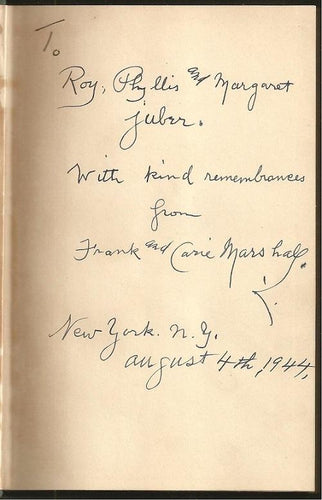 To
Roy, Phyllis and Margaret
Juber.
With kind remembrances
from
Frank and Carie Marshall.
New York. N.Y.
August 4th, 1944,